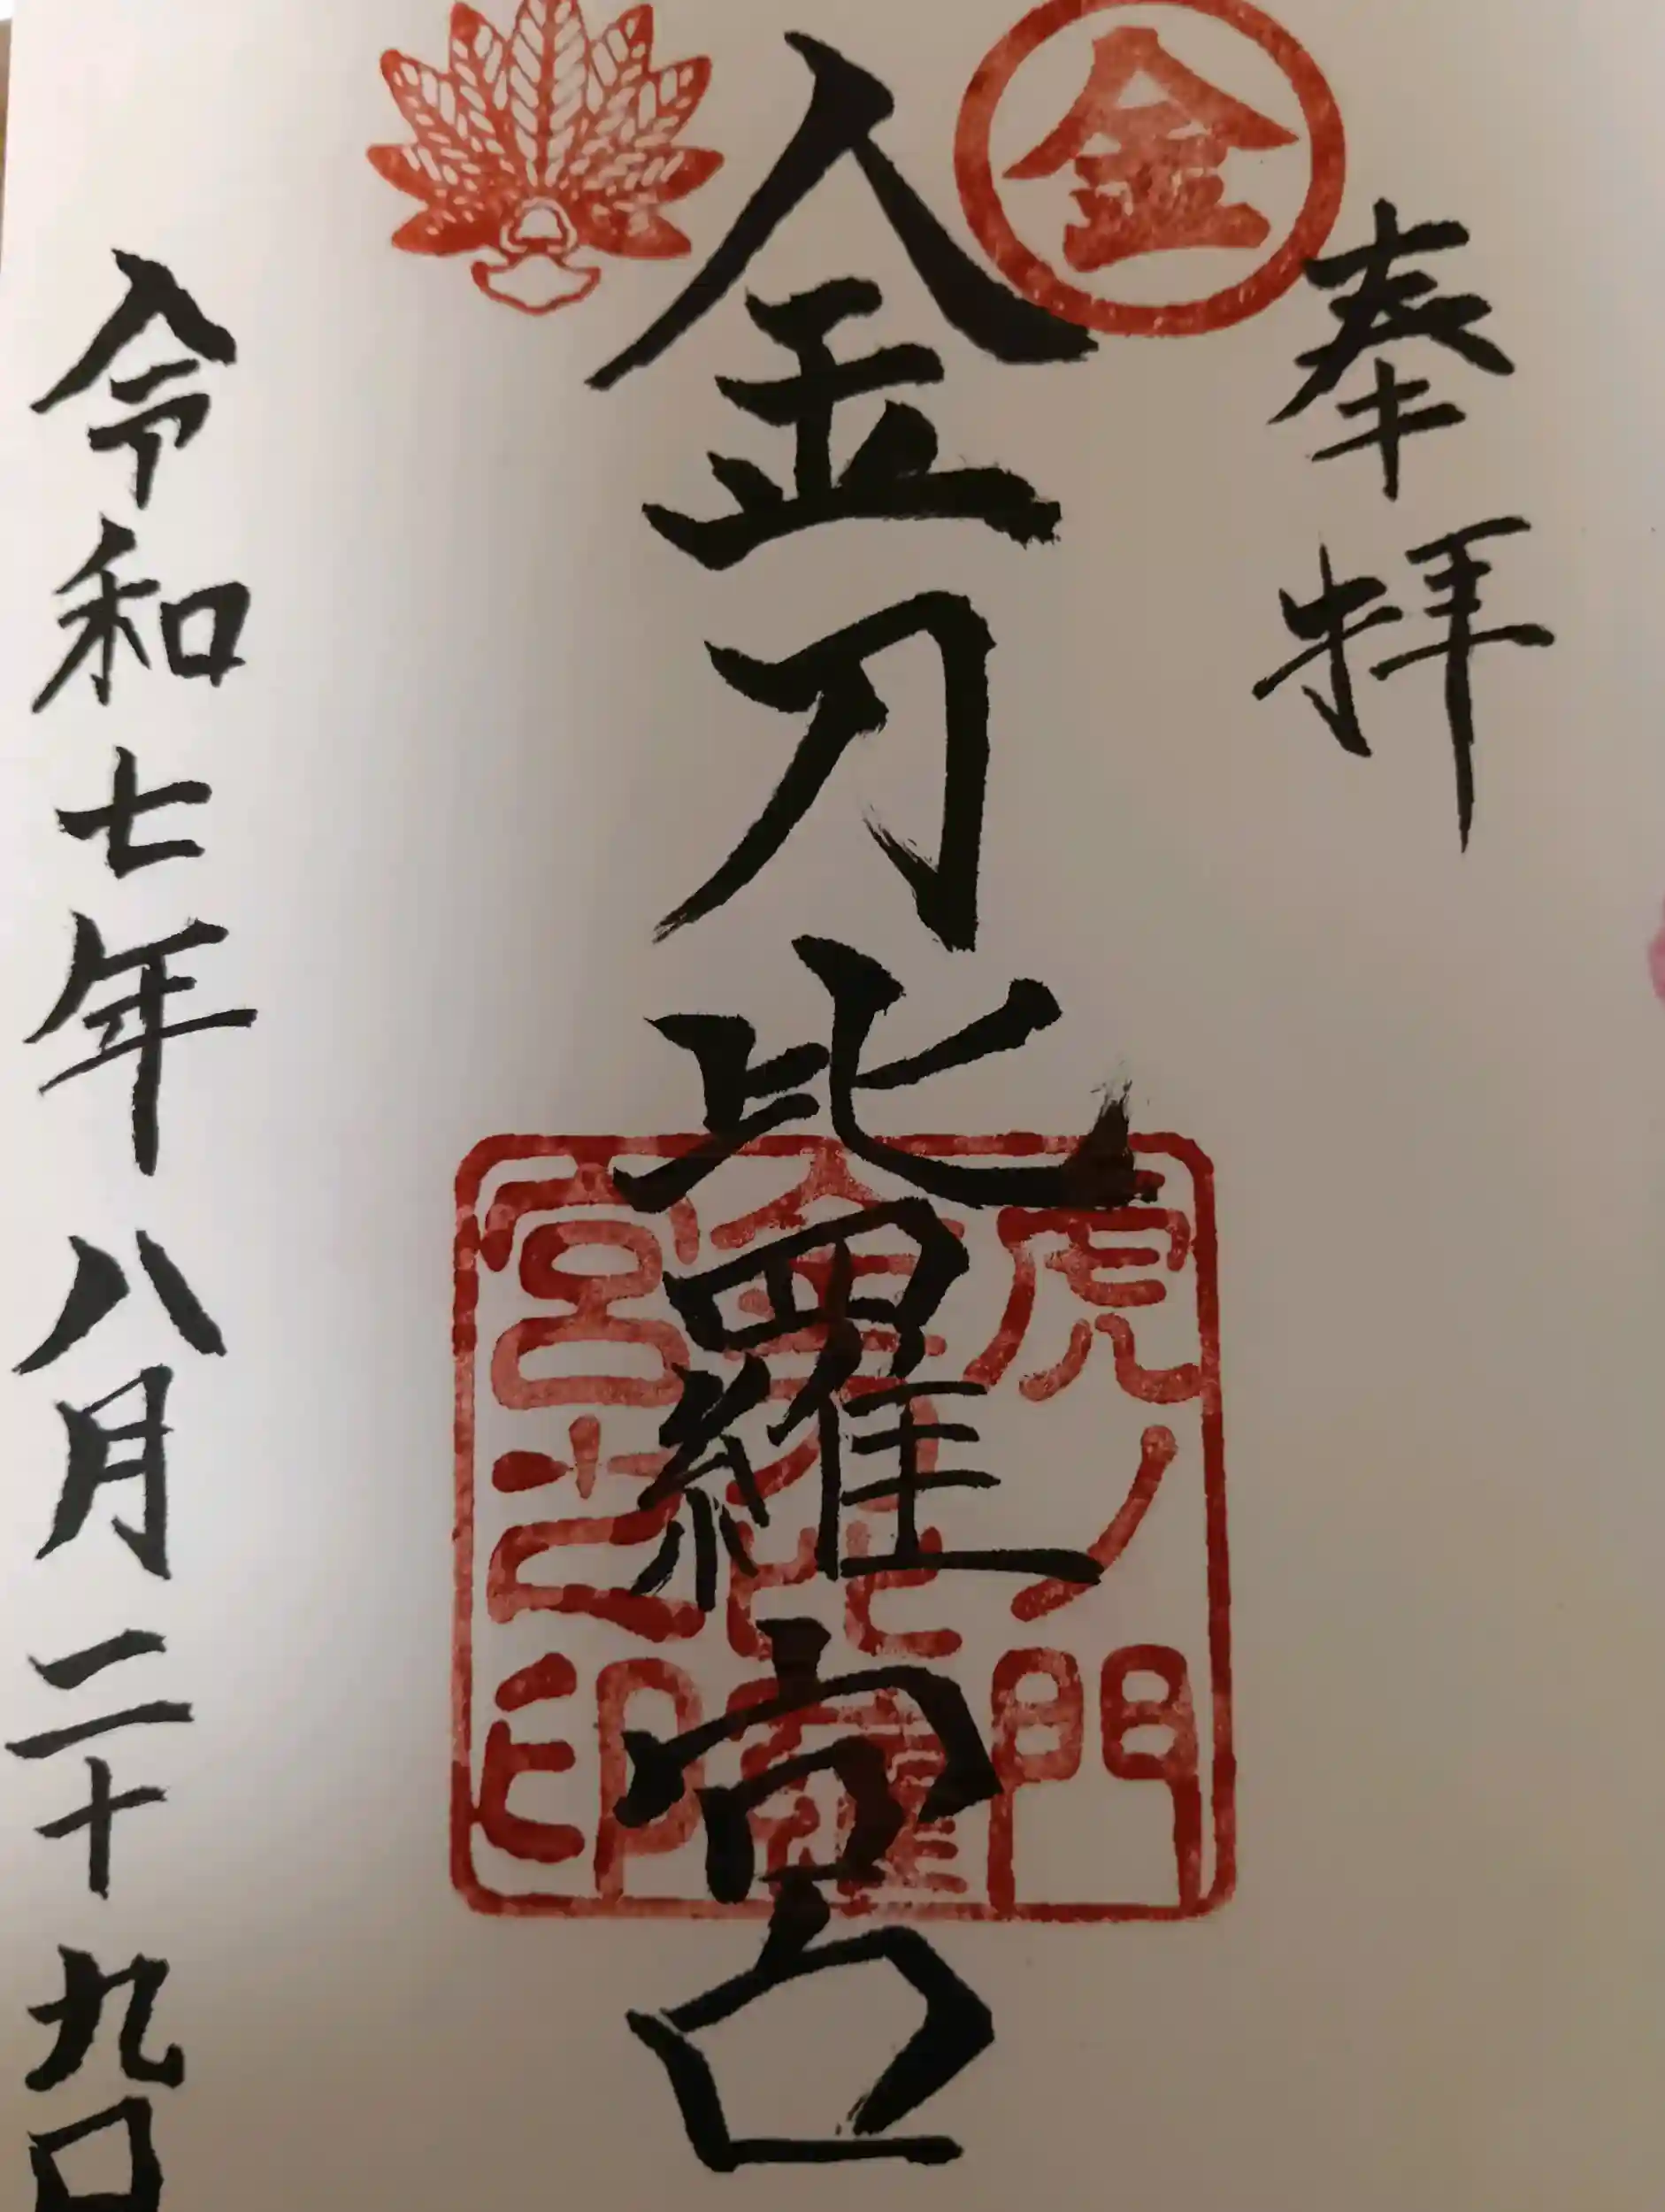 奉拝
金
金刀比羅宮
虎ノ門
金刀比羅
宮之印
令和七年八月二十九日